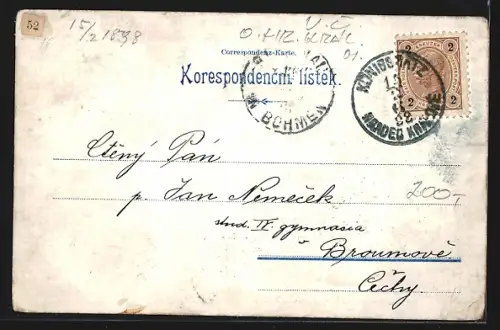 52
15/2 1898
V. Č.
Correspondenz-Karte.
Korespondenční lístek.
BÖHMEN
KÖNIGGRATZ
HRADEC KRÁLOVÉ
2 2
2 2
Ctěný Pán
p. Jan Nemeček
stud. IV. gymnasia
v Broumově
Čechy.
200,-